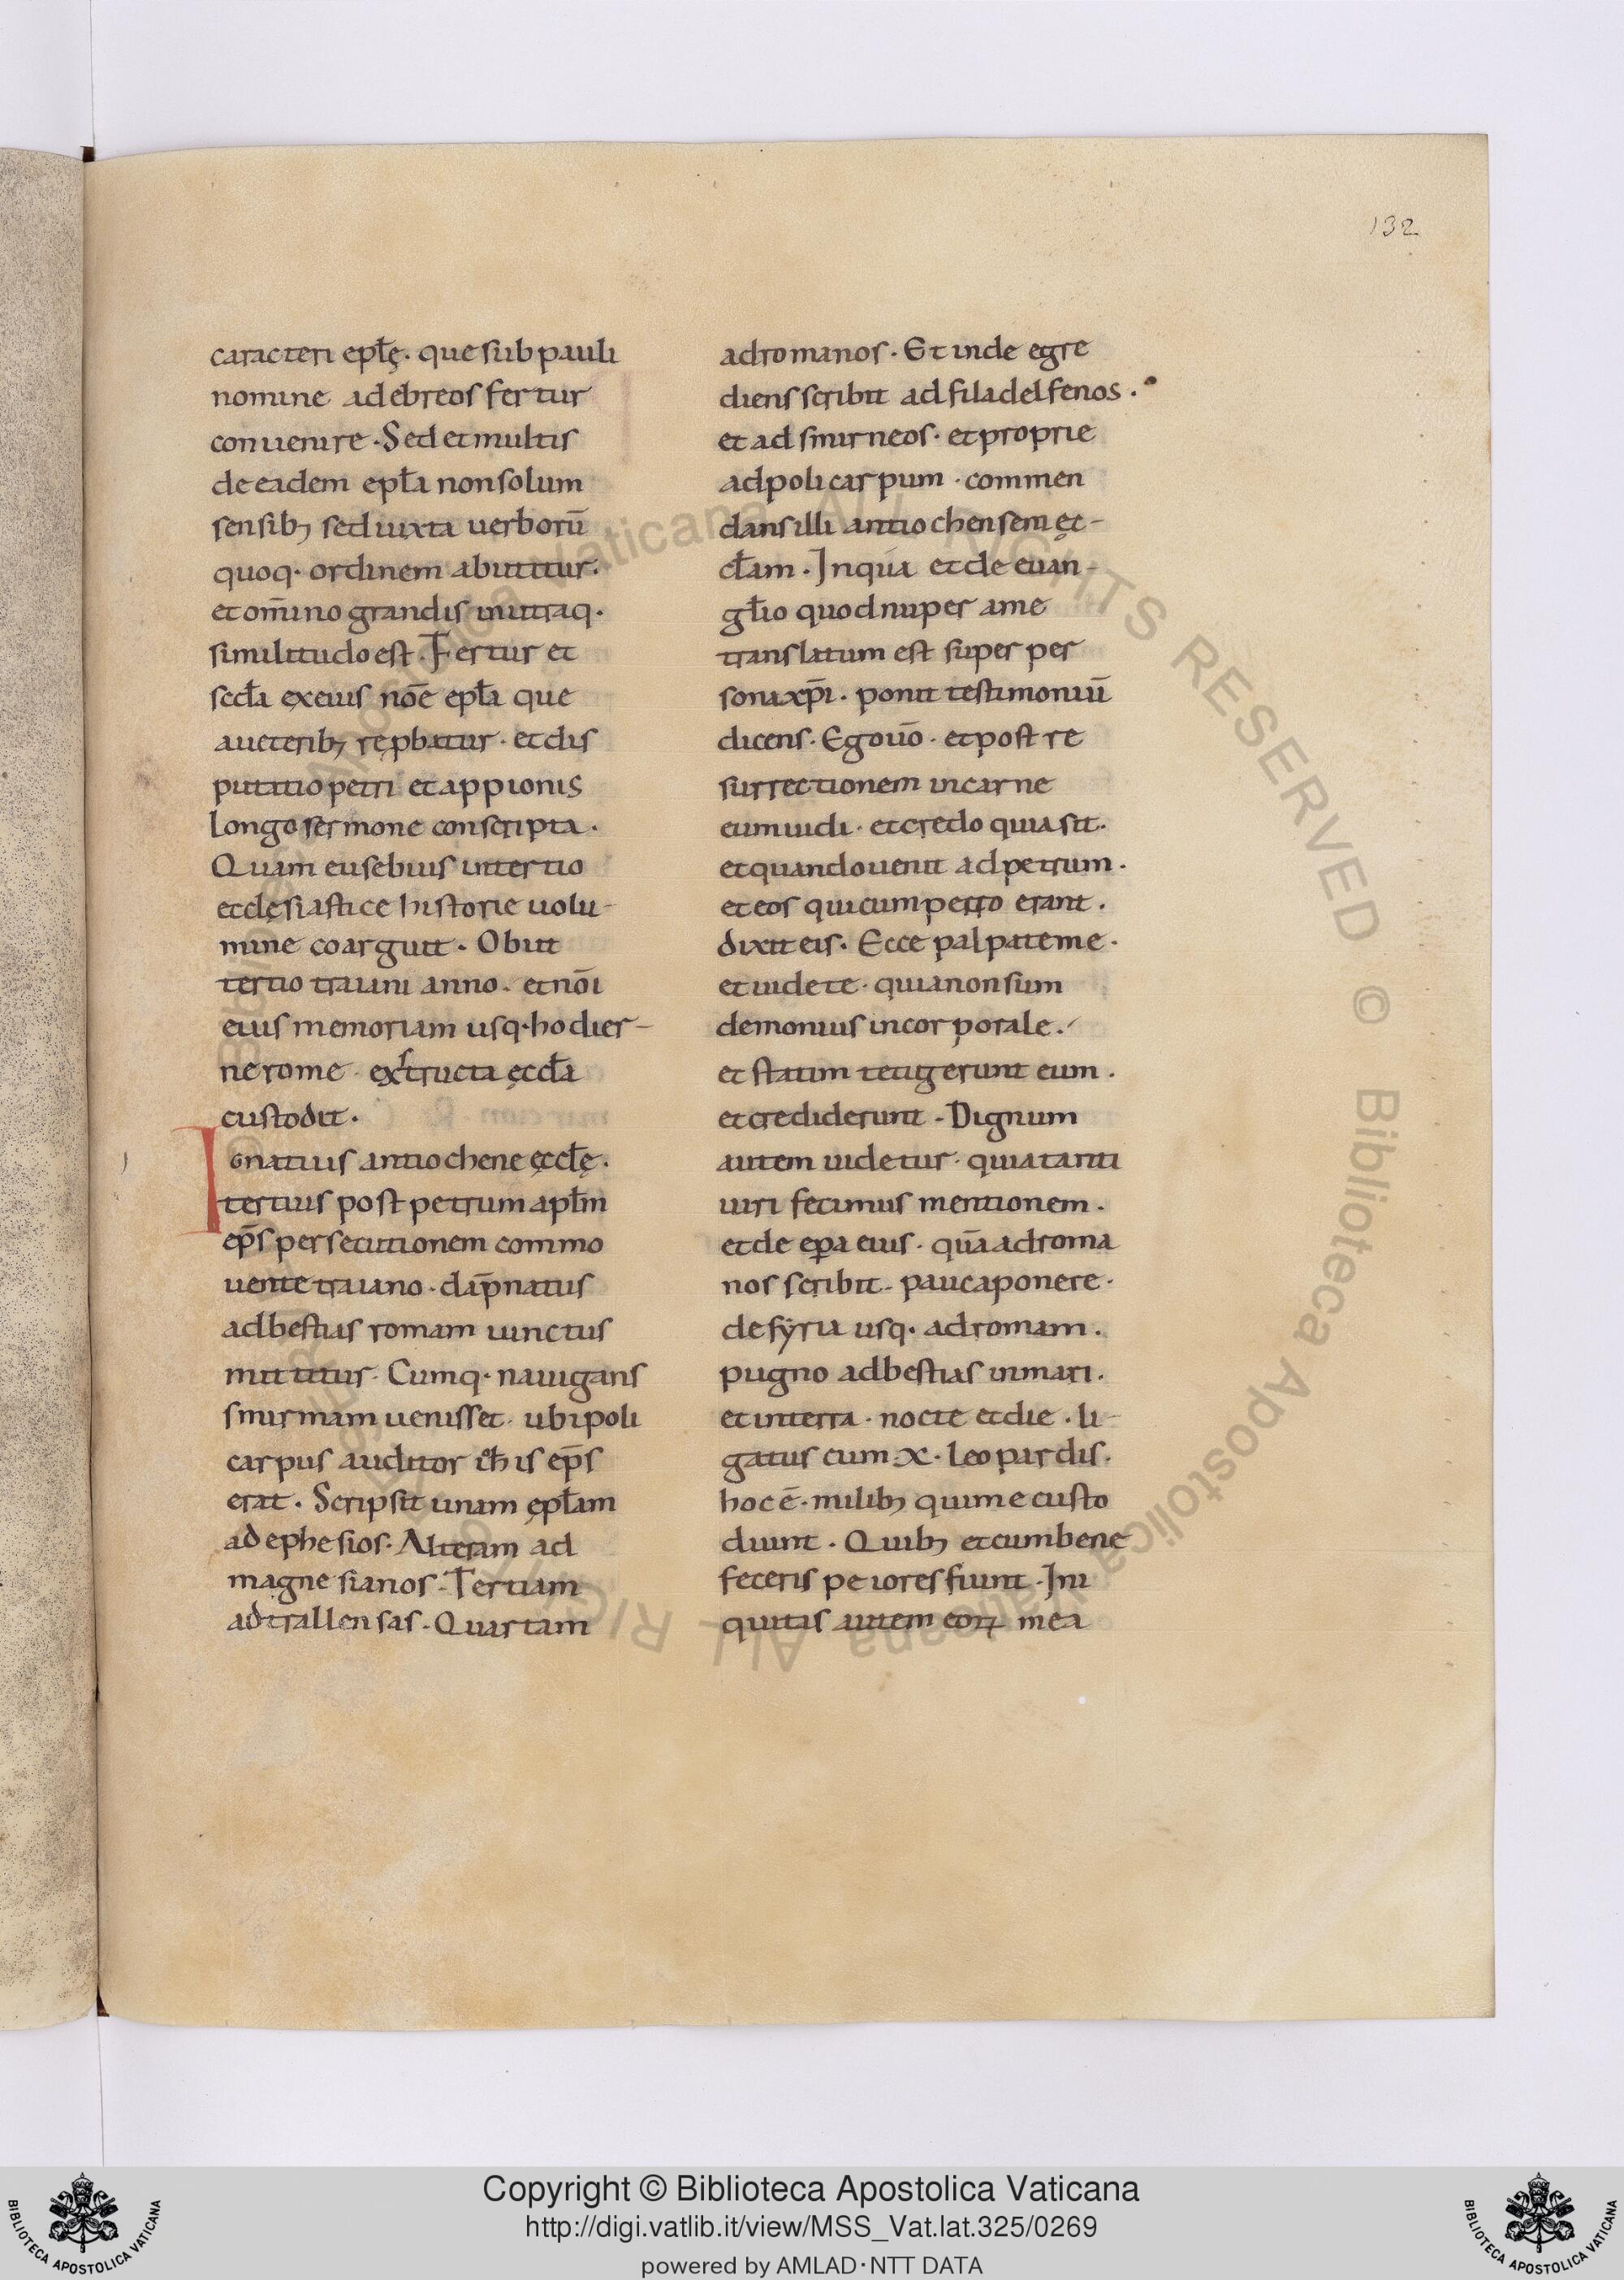 132
caracteri epłę. que sub pauli
nomine ad ebreos fertur
conuenire. Sed et multis
de eadem epła non solum
sensib; sed iuxta uerborū
quoq. ordinem abutitur.
et om̄ino grandis in utraq.
similitudo est. Fertur et
secđa ex eius nōe epła que
a ueterib; rep̱batur. et dis
putatio petri et appionis
longo sermone conscripta.
Quam eusebius in tertio
ecclęsiastice historie uolu-
mine coarguit. Obiit
tertio traiani anno. et nōi
eius memoriam usq. hodier-
ne rome exstructa ęccła
custodit.
Ignatius antiochene ęccłę.
tertius post petrum apłm
ep̄s persecutionem commo
uente traiano. dāpnatus
ad bestias romam uinctus
mittitur. Cumq. nauigans
smirmam uenisset. ubi poli
carpus auditor ioħis ep̄s
erat. Scripsit unam ępłam
ad ephesios. Alteram ad
magnesianos. Tertiam
ad trallensas. Quartam
ad romanos. Et inde egre
diens scribit ad filadelfenos.
et ad smirneos. et proprie
ad policarpum. commen
dans illi antiochensem ęc-
cłam. In qua et de euan-
głio quod nuper a me
translatum est super per
sona xp̄i. ponit testimoniū
dicens. Ego ūo. et post re
surrectionem in carne
eum uidi. et credo quia sit.
et quando uenit ad petrum.
et eos qui cum petro erant.
dixit eis. Ecce palpate me.
et uidete. quia non sum
demonius incorporale.
et statim tetigerunt eum.
et crediderunt. Dignum
autem uidetur. quia tanti
uiri fecimus mentionem.
et de ep̱a eius. quā ad roma
nos scribit. pauca ponere.
de syria usq. ad romam.
pugno ad bestias in mari.
et in terra. nocte et die. li-
gatus cum x. leopardis.
hoc ē. milib; qui me custo
diunt. Quib; et cum bene
feceris peiores fiunt. Ini
quitas autem eoꝝ mea
Copyright © Biblioteca Apostolica Vaticana
http://digi.vatlib.it/view/MSS_Vat.lat.325/0269
powered by AMLAD·NTT DATA
BIBLIOTECA APOSTOLICA VATICANA
BIBLIOTECA APOSTOLICA VATICANA